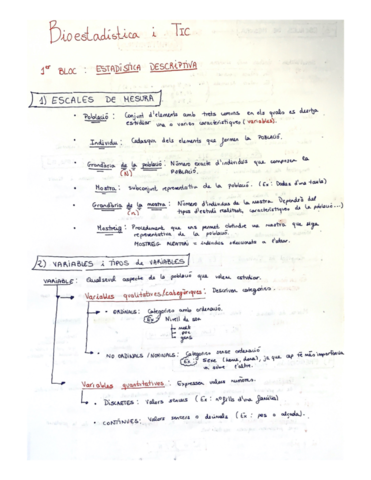 Bioestadística i TIC
1er BLOC : ESTADÍSTICA DESCRIPTIVA
1) ESCALES DE MESURA
• Població : Conjunt d'elements amb trets comuns en els quals es desitja
estudiar una o varies característiques (variables).
• Individu : Cadasqun dels elements que formen la POBLACIÓ.
• Grandària de la població : Número exacte d'individus que componen la
(N) POBLACIÓ.
• Mostra : subconjunt representatiu de la població. (Ex : Dades d'una taula)
• Grandària de la mostra : Número d'individus de la mostra. Dependrà del
(n) tipus d'estudi realitzat, característiques de la població...)
• Mostreig : Procediment que ens permet obtindre una mostra que siga
representativa de la població.
MOSTREIG ALEATORI = individus seleccionats a l'atzar.
2) VARIABLES i TIPOS de VARIABLES
VARIABLE : Qualsevol aspecte de la població que volem estudiar.
Variables qualitatives/categòriques : Descriuen categories.
• ORDINALS : Categories amb ordenació.
Ex : Nivell de
molt
poc
gens
• NO ORDINALS / NOMINALS : Categories sense ordenació
Ex : Sexe (home, dona), ja que cap té més importància
sobre l'altre.
Variables quantitatives : Expressen valors numèrics.
• DISCRETES : Valors sencers (Ex : nº fills d'una família)
• CONTINUES : Valors sencers o decimals (Ex : pes o alçada).